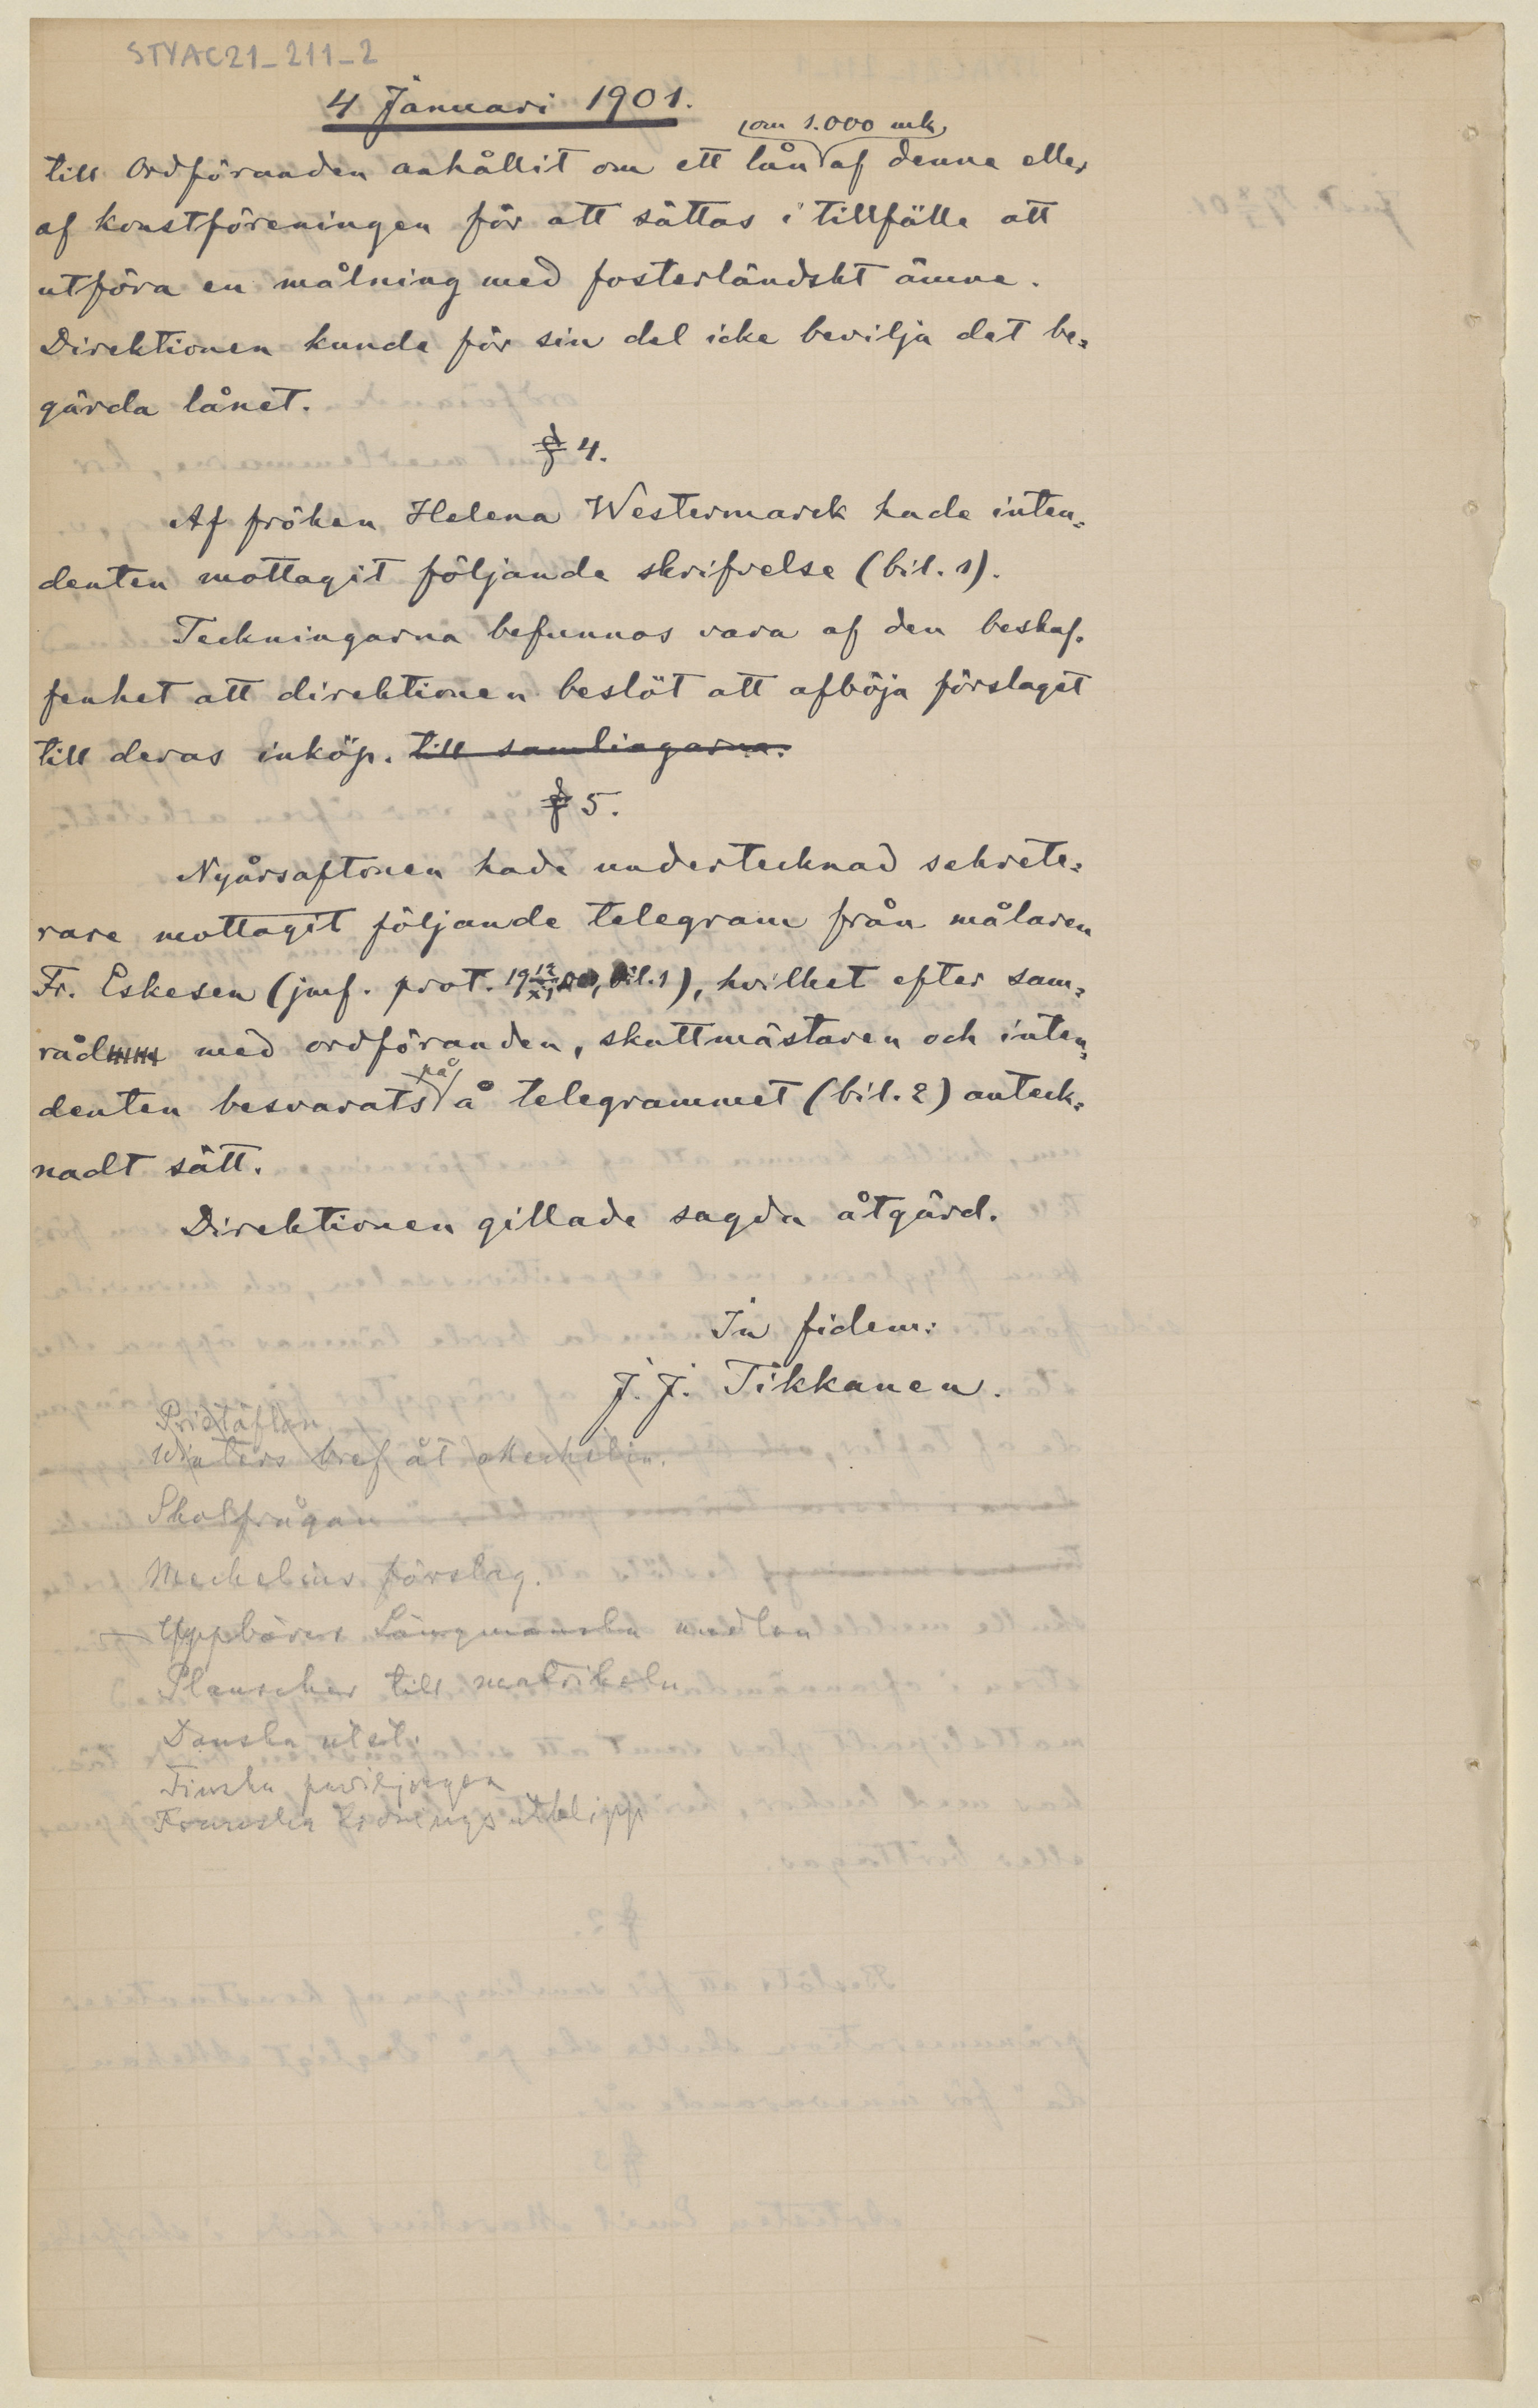 STYAC21_211_2
4 Januari 1901.
om 1.000 mk
till Ordföranden anhållit om ett lån af denne eller
af konstföreningen för att sättas i tillfälle att
utföra en målning med fosterländskt ämne.
Direktionen kunde för sin del icke bevilja det be=
gärda lånet.
§ 4.
Af fröken Helena Westermarck hade inten=
denten mottagit följande skrifvelse (bil. 1).
Teckningarna befunnos vara af den beskaf-
fenhet att direktionen beslöt att afböja förslaget
till deras inköp. till samlingarna.
§ 5.
Nyårsaftonen hade undertecknad sekrete=
rare mottagit följande telegram från målaren
Fr. Eskesen (jmf. prot. 19 12/XI 00, bil. 1), hvilket efter sam=
råd med ordföranden, skattmästaren och inten=
på
denten besvarats å telegrammet (bil. 2) anteck=
nadt sätt.
Direktionen gillade sagda åtgärd.
In fidem:
J. J. Tikkanen.
Pristäflan
Winters bref åt Mechelin.
Skolfrågan
Mechelins förslag.
Längmanska medlen
Planscher till matrikeln
Danska utst.
Finska paviljongen
Franska tidningsutklipp